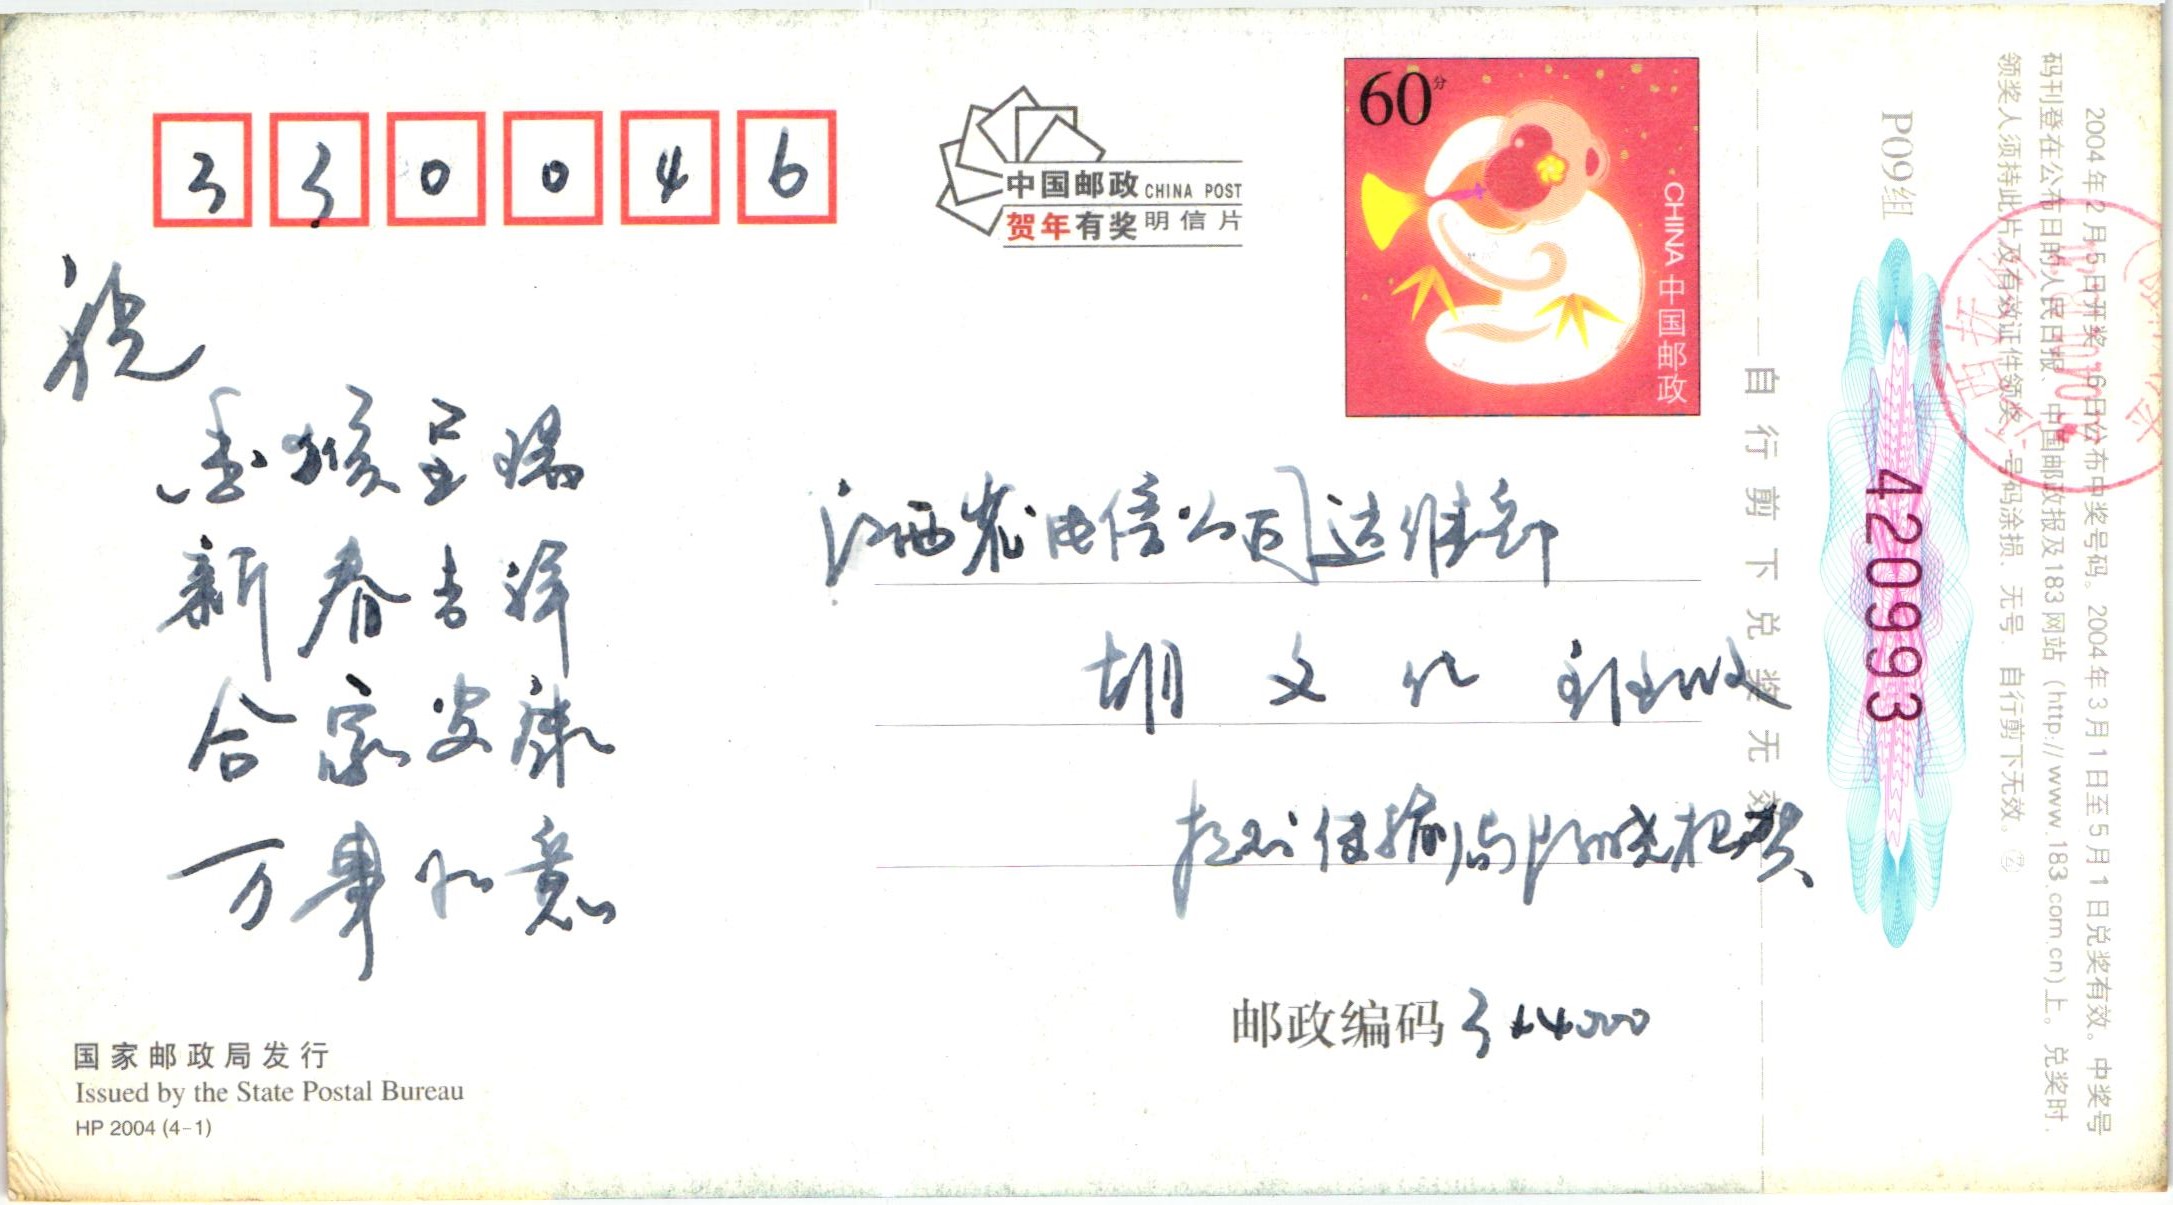 330046
中国邮政 CHINA POST
贺年有奖明信片
60分
CHINA 中国邮政
祝
金猴呈瑞
新春吉祥
合家安康
万事如意
江西省电信公司运维部
胡文化
传输局
邮政编码 314000
国家邮政局发行
Issued by the State Postal Bureau
HP 2004 (4-1)
自行剪下兑奖无效
P09组
420993
2004年2月5日开奖，6日公布中奖号码。2004年3月1日至5月1日兑奖有效。中奖号
码刊登在公布日的人民日报、中国邮政报及183网站（http://www.183.com.cn)上。兑奖时，
领奖人须持此片及有效证件领奖。号码涂损、无号、自行剪下无效。